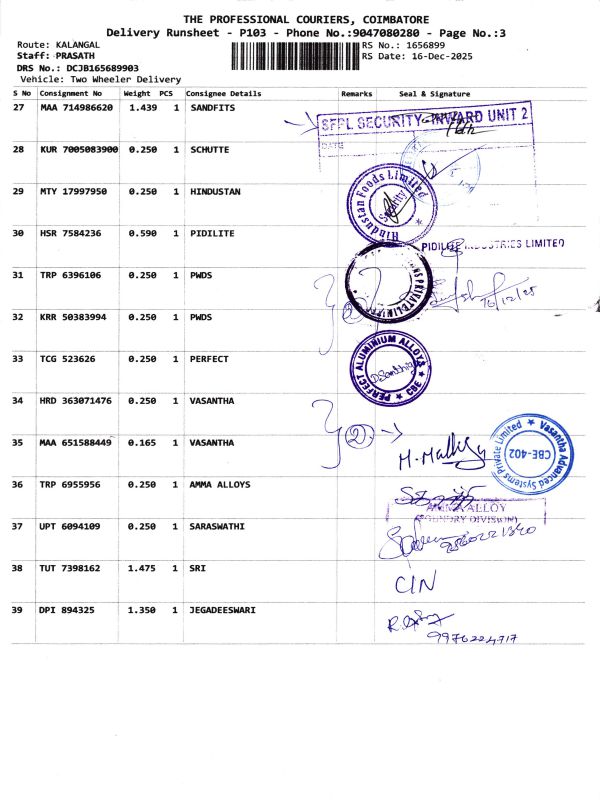 THE PROFESSIONAL COURIERS, COIMBATORE
Delivery Runsheet - P103 - Phone No.:9047080280 - Page No.:3
Route: KALANGAL
RS No.: 1656899
Staff: PRASATH
RS Date: 16-Dec-2025
DRS No.: DCJB165689903
Vehicle: Two Wheeler Delivery
S No Consignment No Weight PCS Consignee Details Remarks Seal & Signature
27 MAA 714986620 1.439 1 SANDFITS
SFPL SECURITY INWARD UNIT 2
DATE
28 KUR 7005083900 0.250 1 SCHUTTE
29 MTY 17997950 0.250 1 HINDUSTAN
Hindustan Foods Limited
Security
30 HSR 7584236 0.590 1 PIDILITE
PIDILITE INDUSTRIES LIMITED
31 TRP 6396106 0.250 1 PWDS
16/12/25
32 KRR 50383994 0.250 1 PWDS
33 TCG 523626 0.250 1 PERFECT
PERFECT ALUMINIUM ALLOYS
CBE
34 HRD 363071476 0.250 1 VASANTHA
35 MAA 651588449 0.165 1 VASANTHA
2
Vasantha Advanced Systems Private Limited
CBE-402
36 TRP 6955956 0.250 1 AMMA ALLOYS
AMMA ALLOY
(FOUNDRY DIVISION)
37 UPT 6094109 0.250 1 SARASWATHI
38 TUT 7398162 1.475 1 SRI
CIN
39 DPI 894325 1.350 1 JEGADEESWARI
9976224717